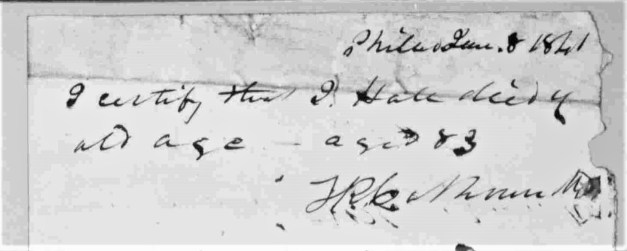 Philad Jan. 8 1841
I certify that D. Hall died of
old age - aged 83